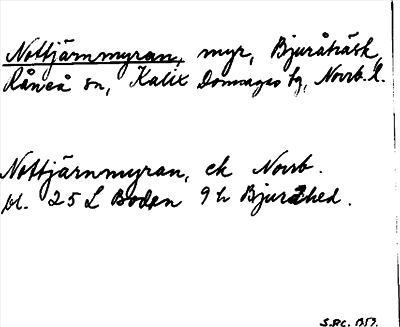 Nottjärnmyran, myr, Bjuråträsk,
Råneå sn, Kalix Domsagas tg, Norrb. l.
Nottjärnmyran, ek Norrb.
bl. 25 L Boden 9 h Bjuråhed.
S.RC. 1959.